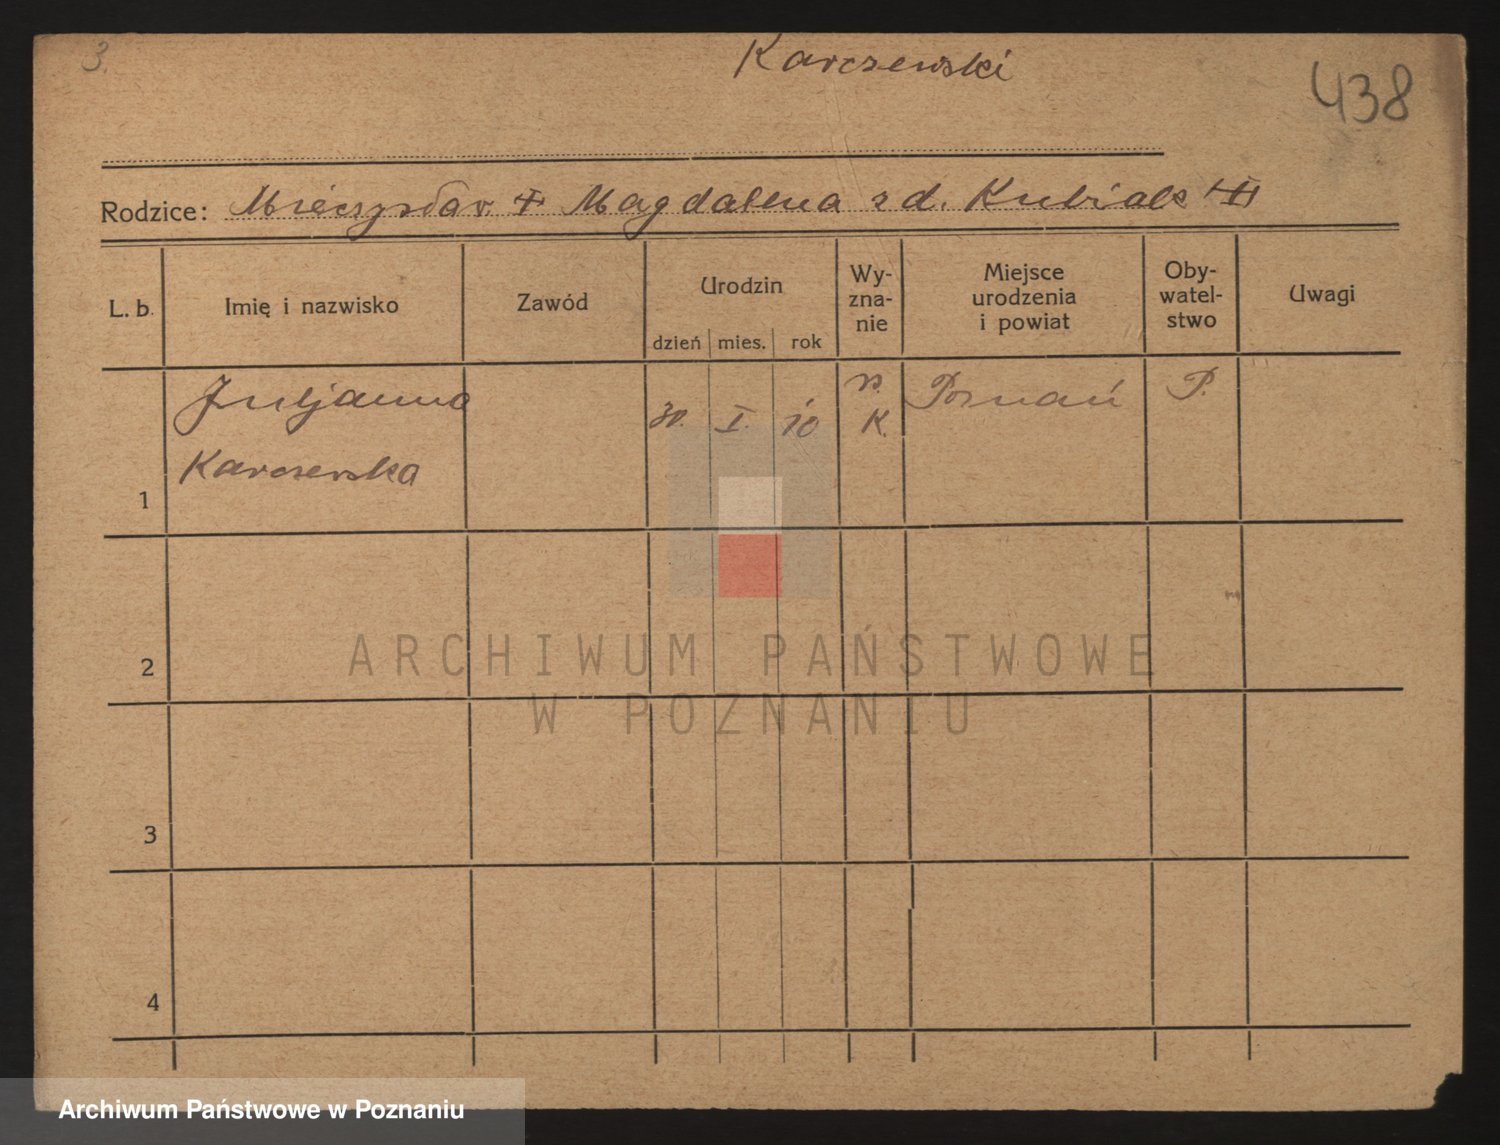 3.
Karczewski
438
Rodzice: Mieczysław + Magdalena z d. Kubiak
L. b. Imię i nazwisko Zawód Urodzin Wy-zna-nie Miejsce urodzenia i powiat Oby-watel-stwo Uwagi
dzień mies. rok
1 Juljanna Karczewska 30. I. 10 r. K. Poznań P.
2
3
4
ARCHIWUM PAŃSTWOWE
W POZNANIU
Archiwum Państwowe w Poznaniu